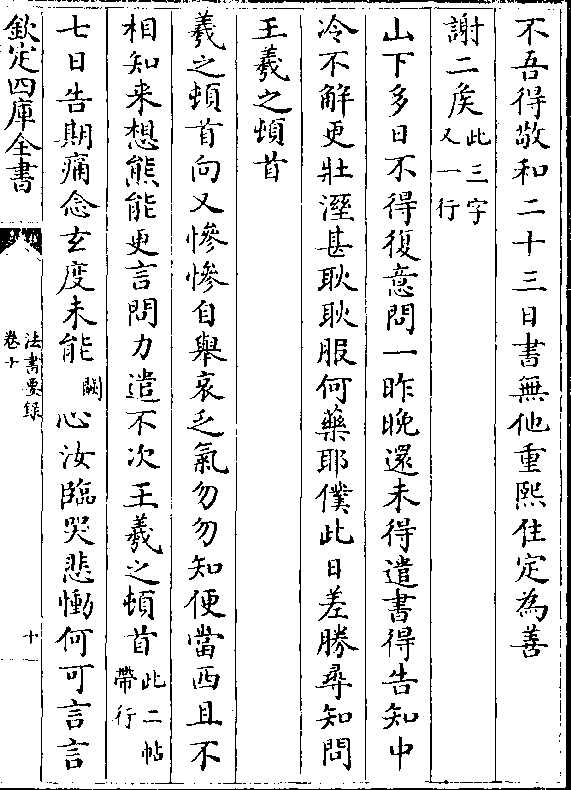 不吾得敬和二十三日書無他重熙住定為善
謝二矦此三字又一行
山下多日不得復意問一昨晚還未得遣書得告知中
冷不解更壯溼甚耿耿服何藥耶僕此日差勝尋知問
王羲之頓首
羲之頓首向又慘慘自舉哀乏氣勿勿知便當西且不
相知来想熊能更言問力遣不次王羲之頓首此二帖帶行
七日告期痛念玄度未能闕心汝臨哭悲慟何可言言
欽定四庫全書
法書要録
卷十
十